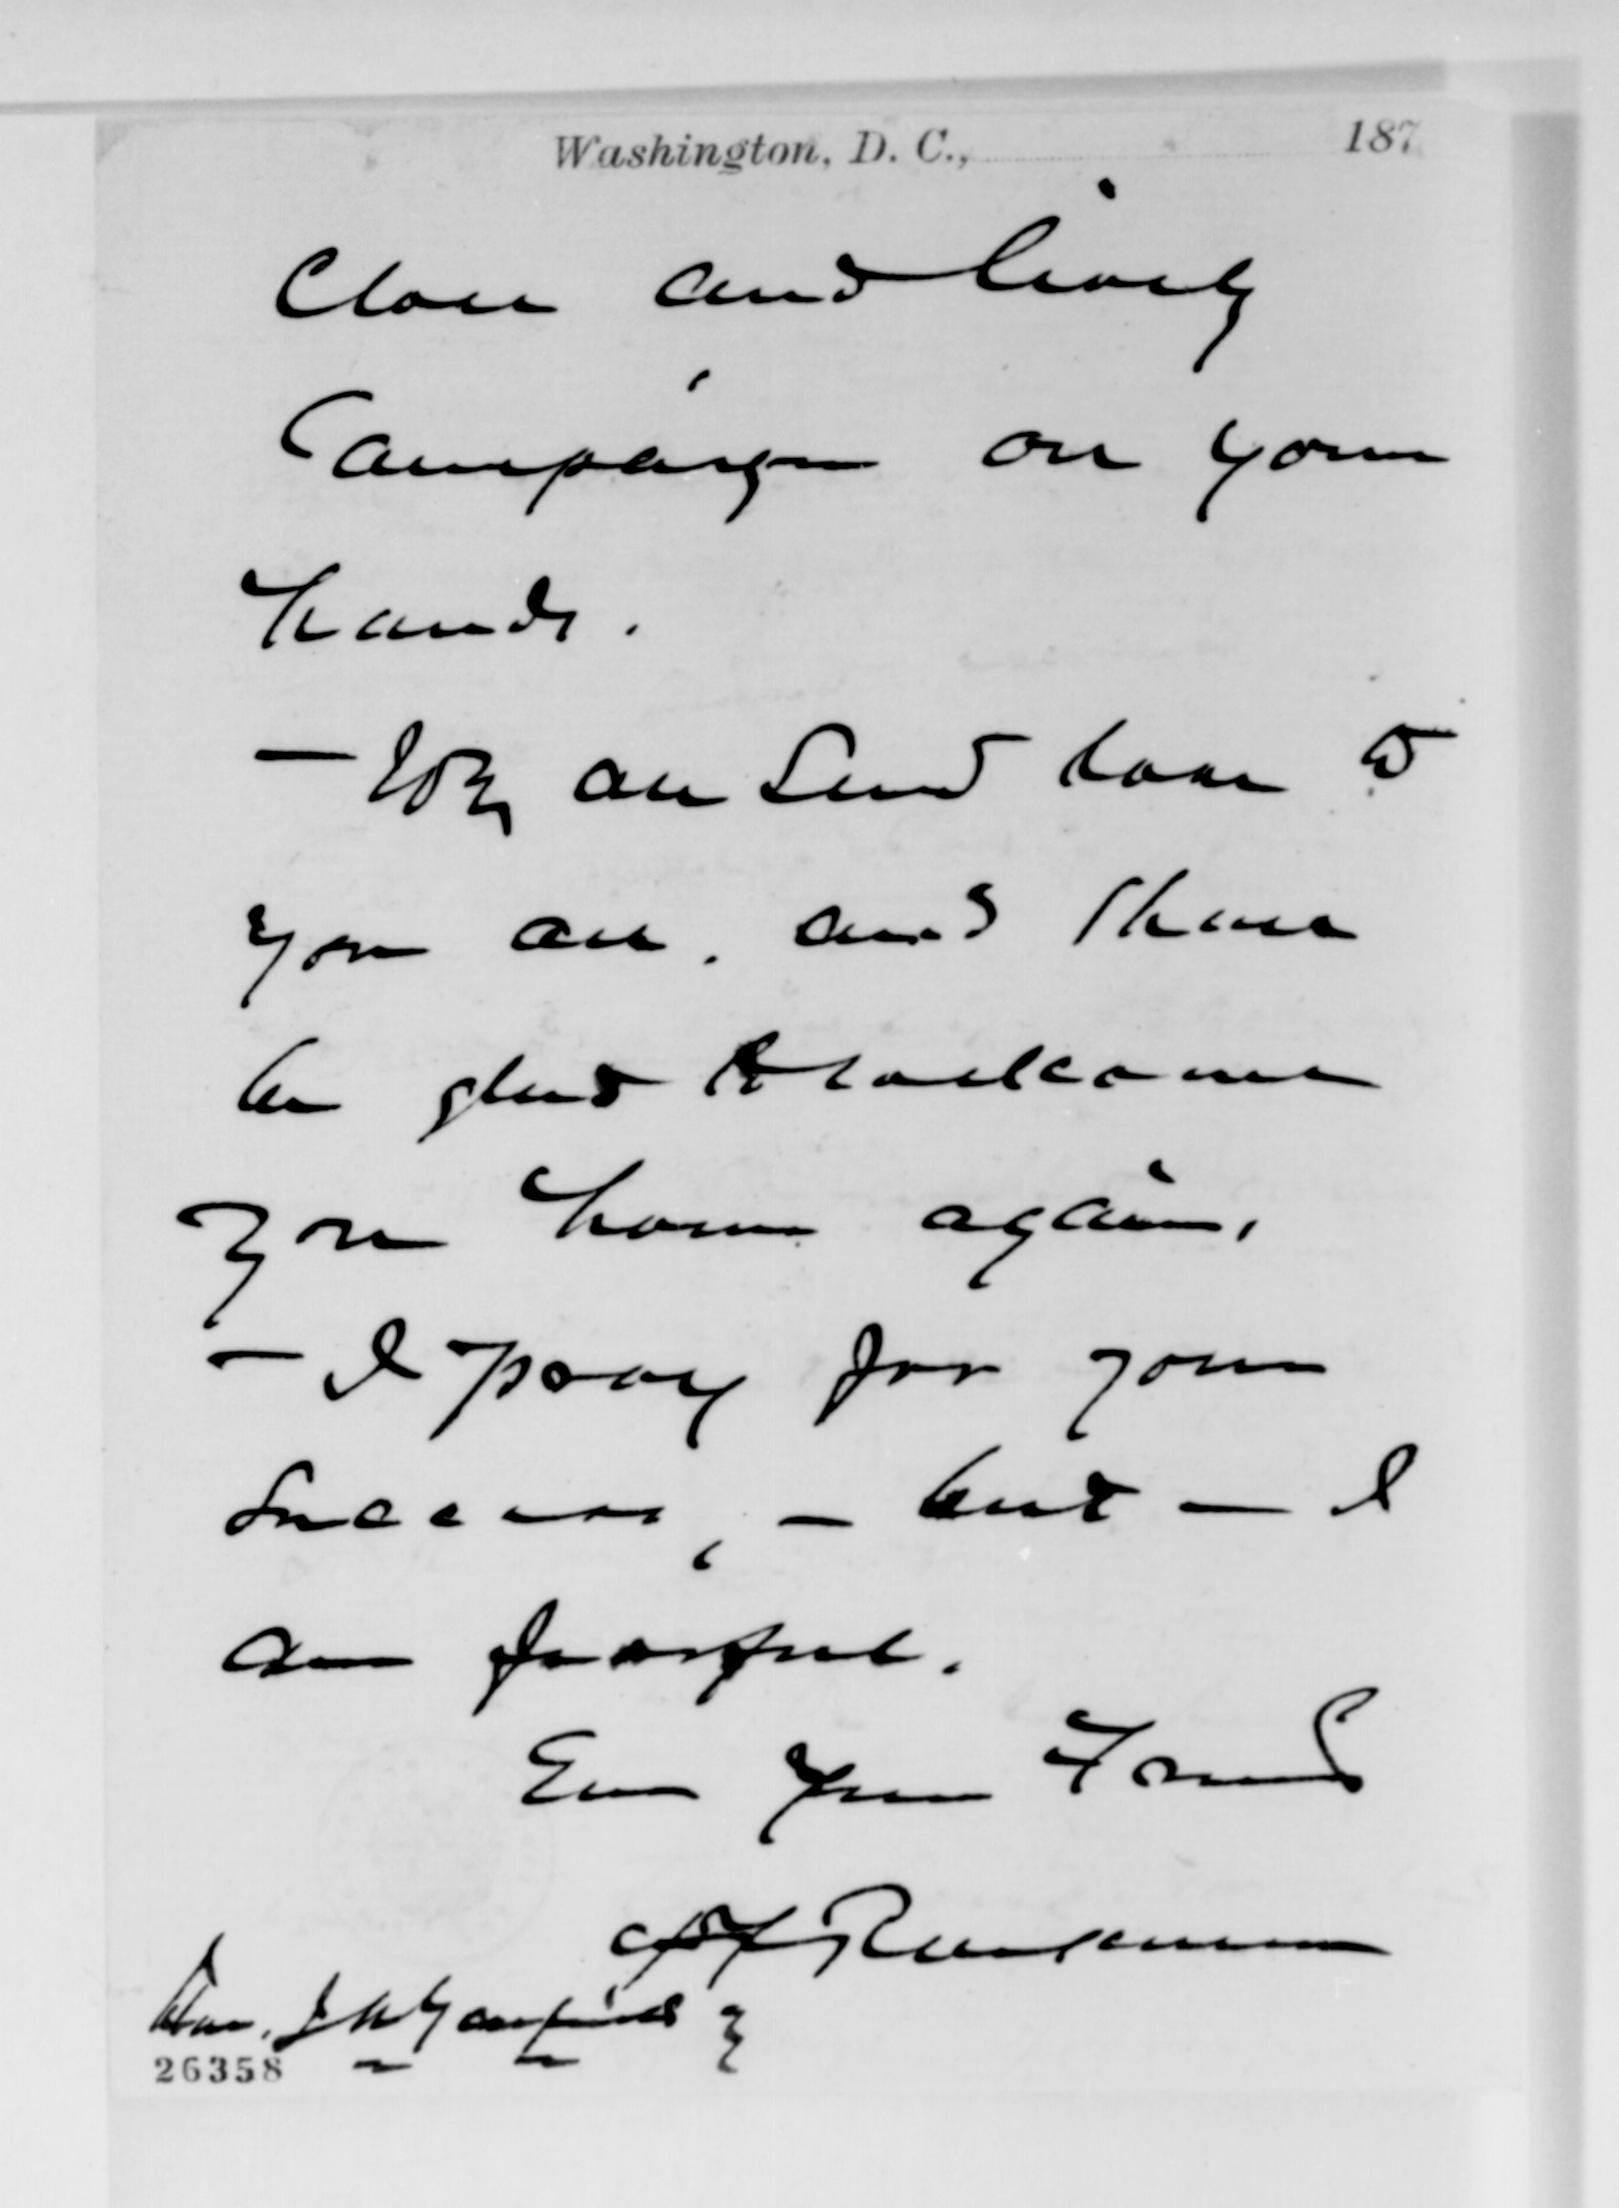 Washington, D. C., 187
Close and lively
Campaign on your
hands.
— We all send love to
you all. and shall
be glad to welcome
you home again.
— I pray for your
success, — but — I
am fearful.
Ever your Friend
Hon. J A Garfield
26358